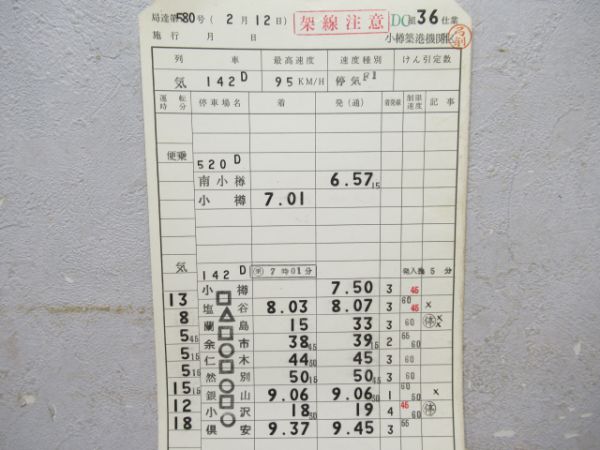 局達第580号 (2月12日) 架線注意 DC組36仕業
施行 月 日 小樽築港機関区
列車 最高速度 速度種別 けん引定数
気 142D 95KM/H 停気F1
運転時分 停車場名 着 発(通) 着発線 制限速度 記事
便乗 520D
南小樽 6.57 15
小樽 7.01
気 142D 7時01分 5分
小樽 7.50 3 45
13 塩谷 8.03 8.07 3 60 45 ×
8 蘭島 15 33 3 60 ××
5 45 余市 38 45 39 15 2 55 60
5 15 仁木 44 50 45 3 60
5 15 然別 50 15 50 45 3 60
15 15 銀山 9.06 9.06 30 1 60 50 ×
12 小沢 18 30 19 4 45 60
18 倶安 9.37 9.45 3 55